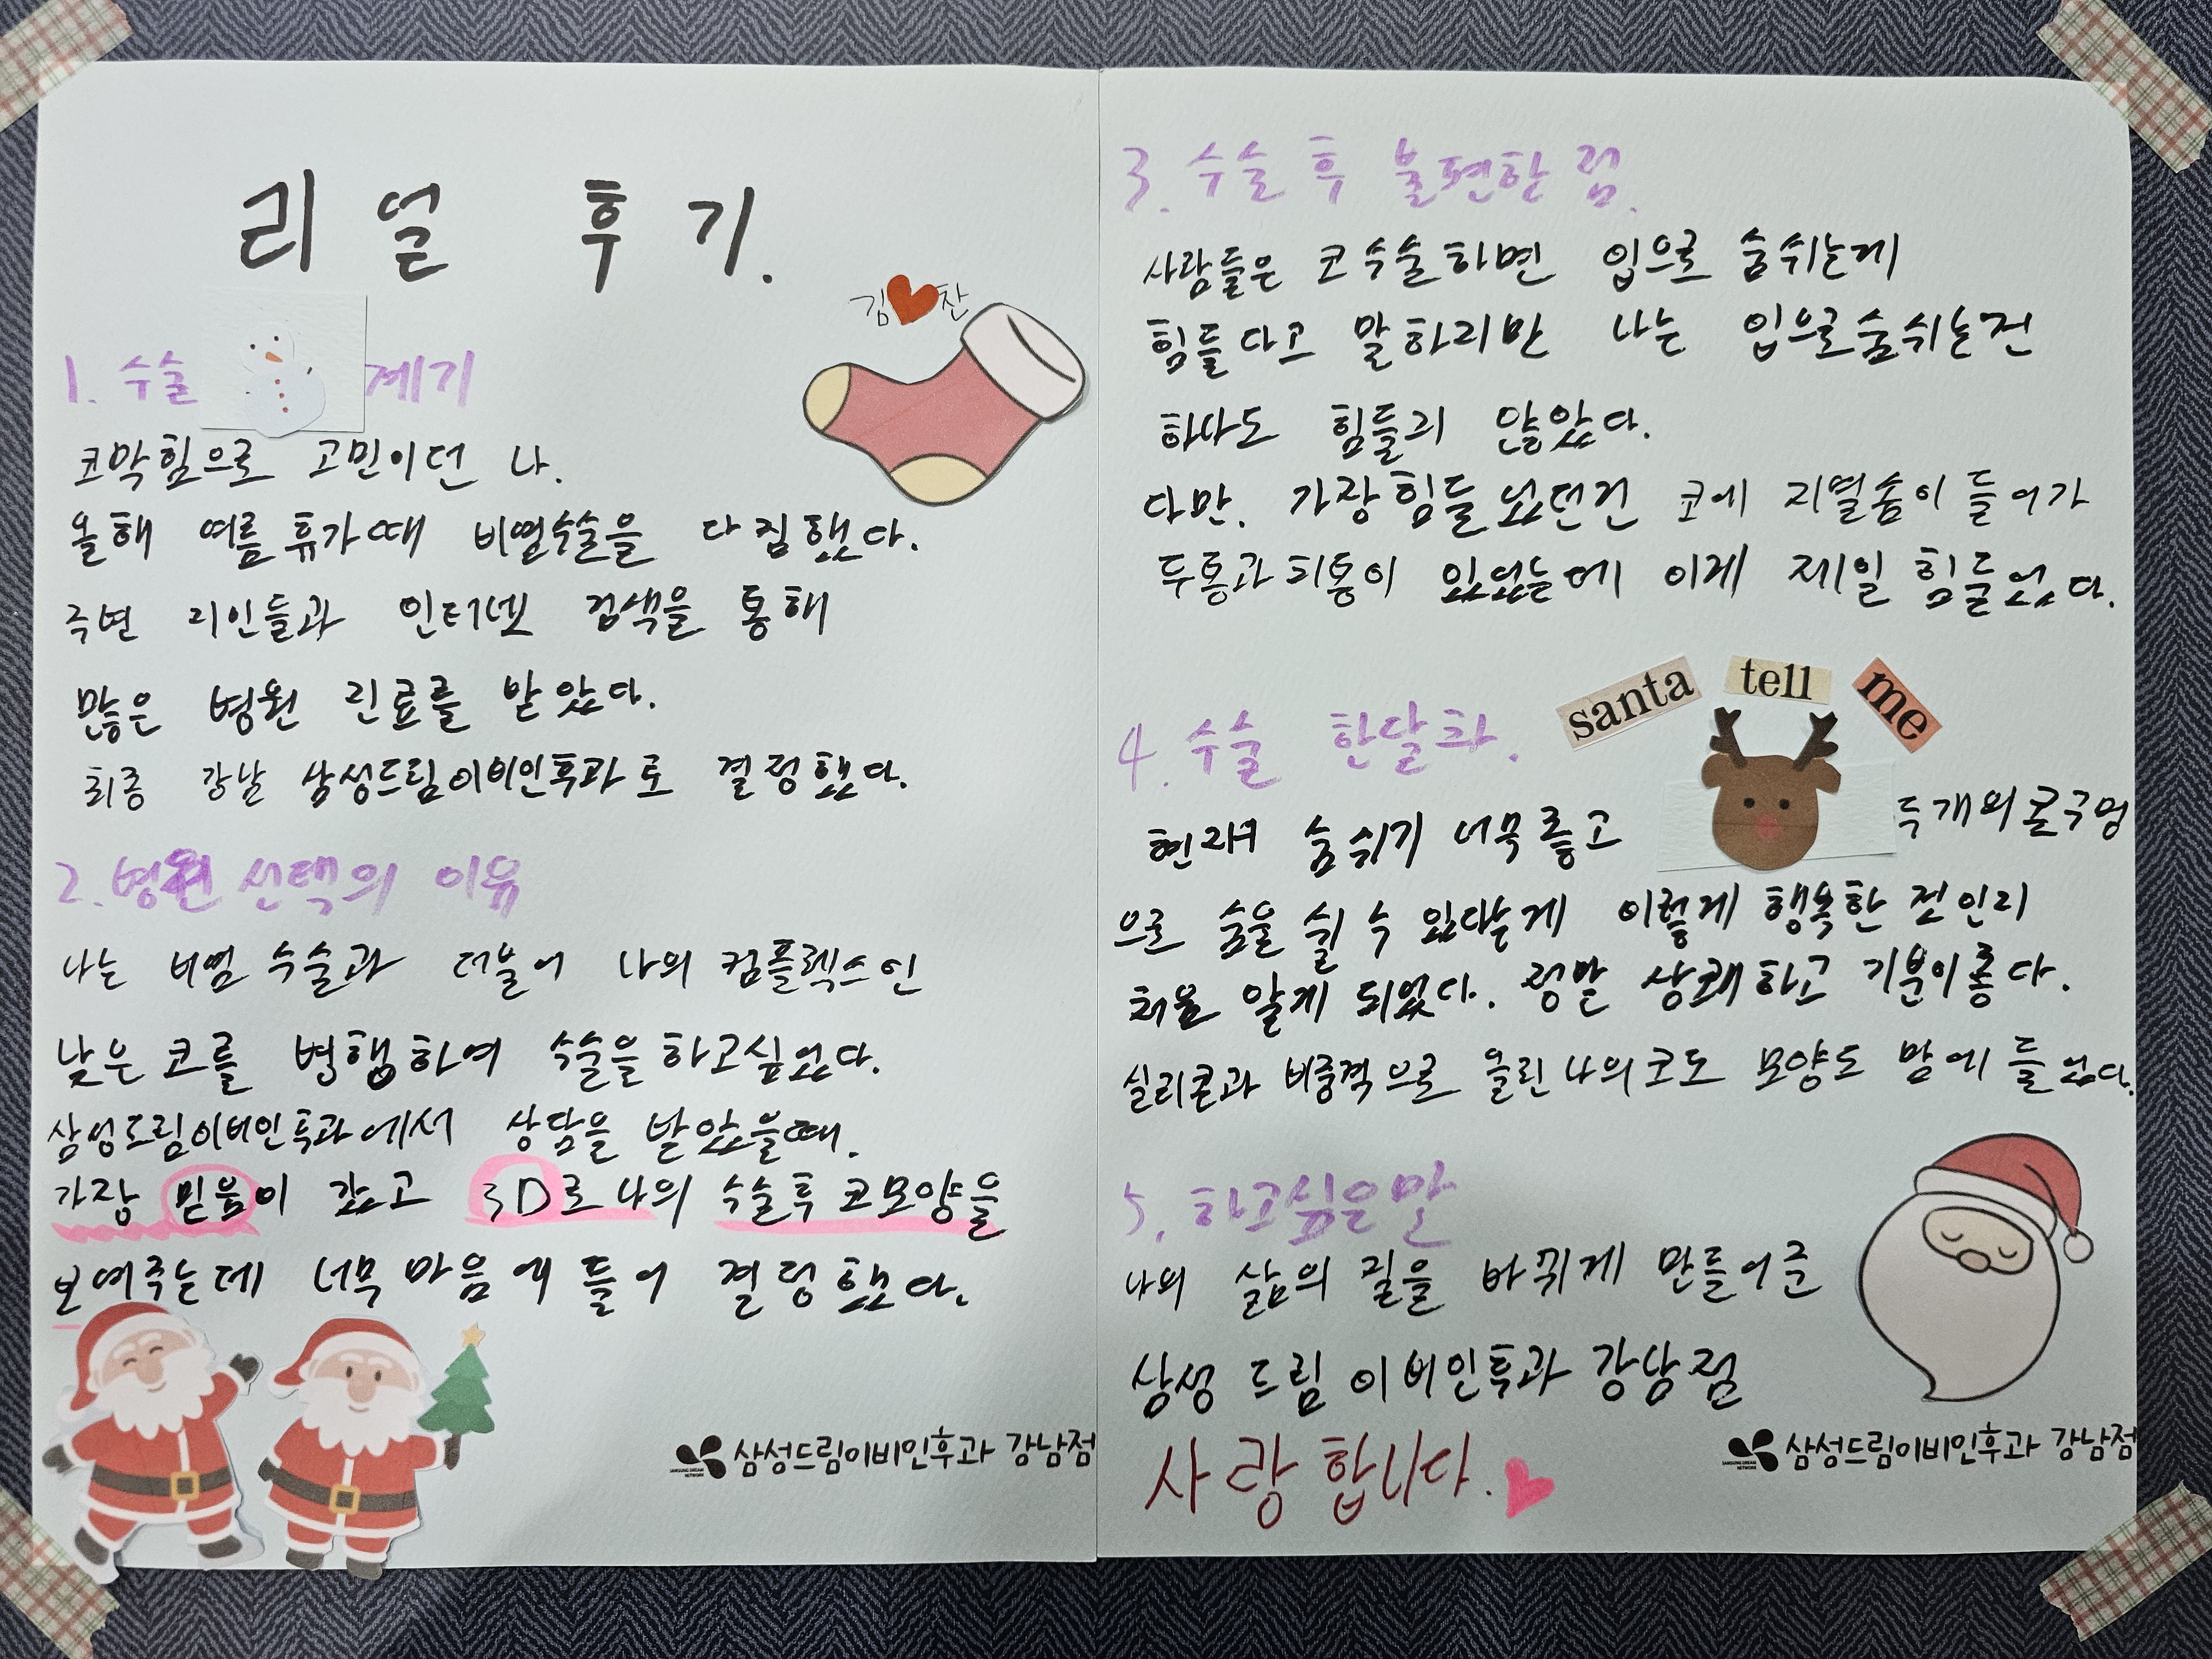 리얼 후기.
김 찬
1. 수술 계기
코막힘으로 고민이던 나.
올해 여름휴가때 비염수술을 다짐했다.
주변 지인들과 인터넷 검색을 통해
많은 병원 진료를 받았다.
최종 강남 삼성드림이비인후과로 결정했다.
2. 병원 선택의 이유
나는 비염 수술과 더불어 나의 컴플렉스인
낮은 코를 병행하여 수술을 하고싶었다.
삼성드림이비인후과에서 상담을 받았을때.
가장 믿음이 갔고 3D로 나의 수술후 코모양을
보여주는데 너무 마음에 들어 결정했다.
삼성드림이비인후과 강남점
3. 수술 후 불편한 점.
사람들은 코수술하면 입으로 숨쉬는게
힘들다고 말하지만 나는 입으로숨쉬는건
하나도 힘들지 않았다.
다만. 가장힘들었던건 코에 지혈솜이 들어가
두통과 치통이 있었는데 이게 제일 힘들었다.
santa tell me
4. 수술 한달차.
현재 숨쉬기 너무좋고 두개의콧구멍
으로 숨을 쉴 수 있다는게 이렇게 행복한 건인지
처음 알게 되었다. 정말 상쾌하고 기분이좋다.
실리콘과 비중격으로 올린 나의코도 모양도 맘에 들었다.
5. 하고싶은말
나의 삶의 질을 바뀌게 만들어준
삼성 드림 이비인후과 강남점
사랑합니다.
삼성드림이비인후과 강남점